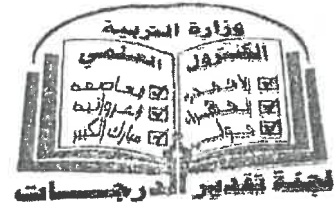 وزارة التربية
الكنترول العلمي
الاحمدي
العاصمة
الفروانيه
حولي
مبارك الكبير
لجنة تقدير الدرجات